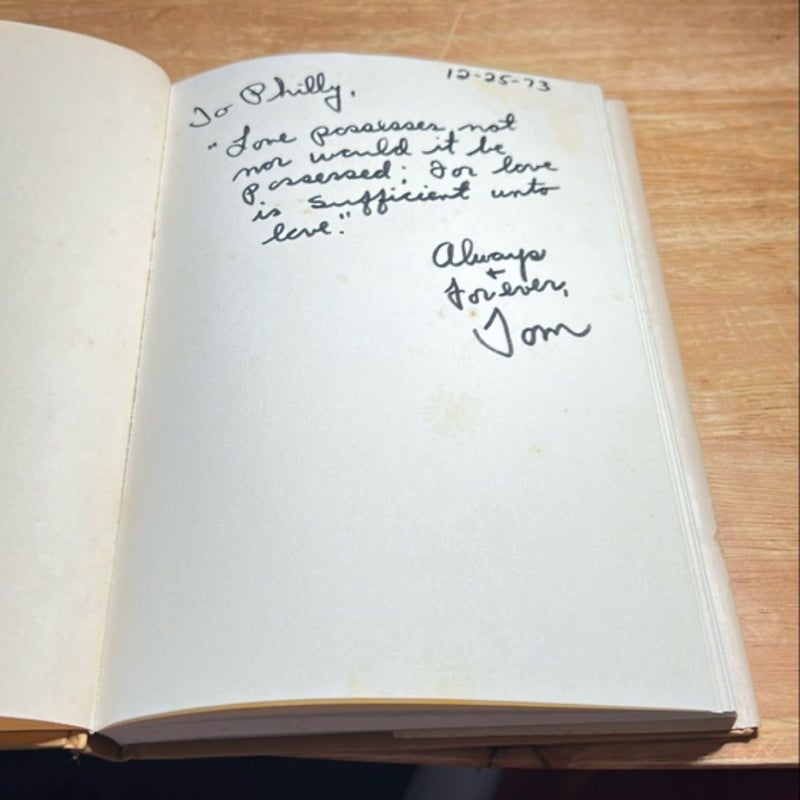 12-25-73
To Philly,
"Love possesses not
nor would it be
possessed; For love
is sufficient unto
love."
Always
+
Forever,
Tom